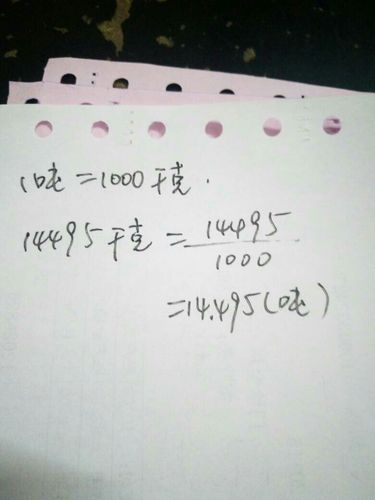 1吨=1000千克.
14495千克=14495/1000
=14.495(吨)